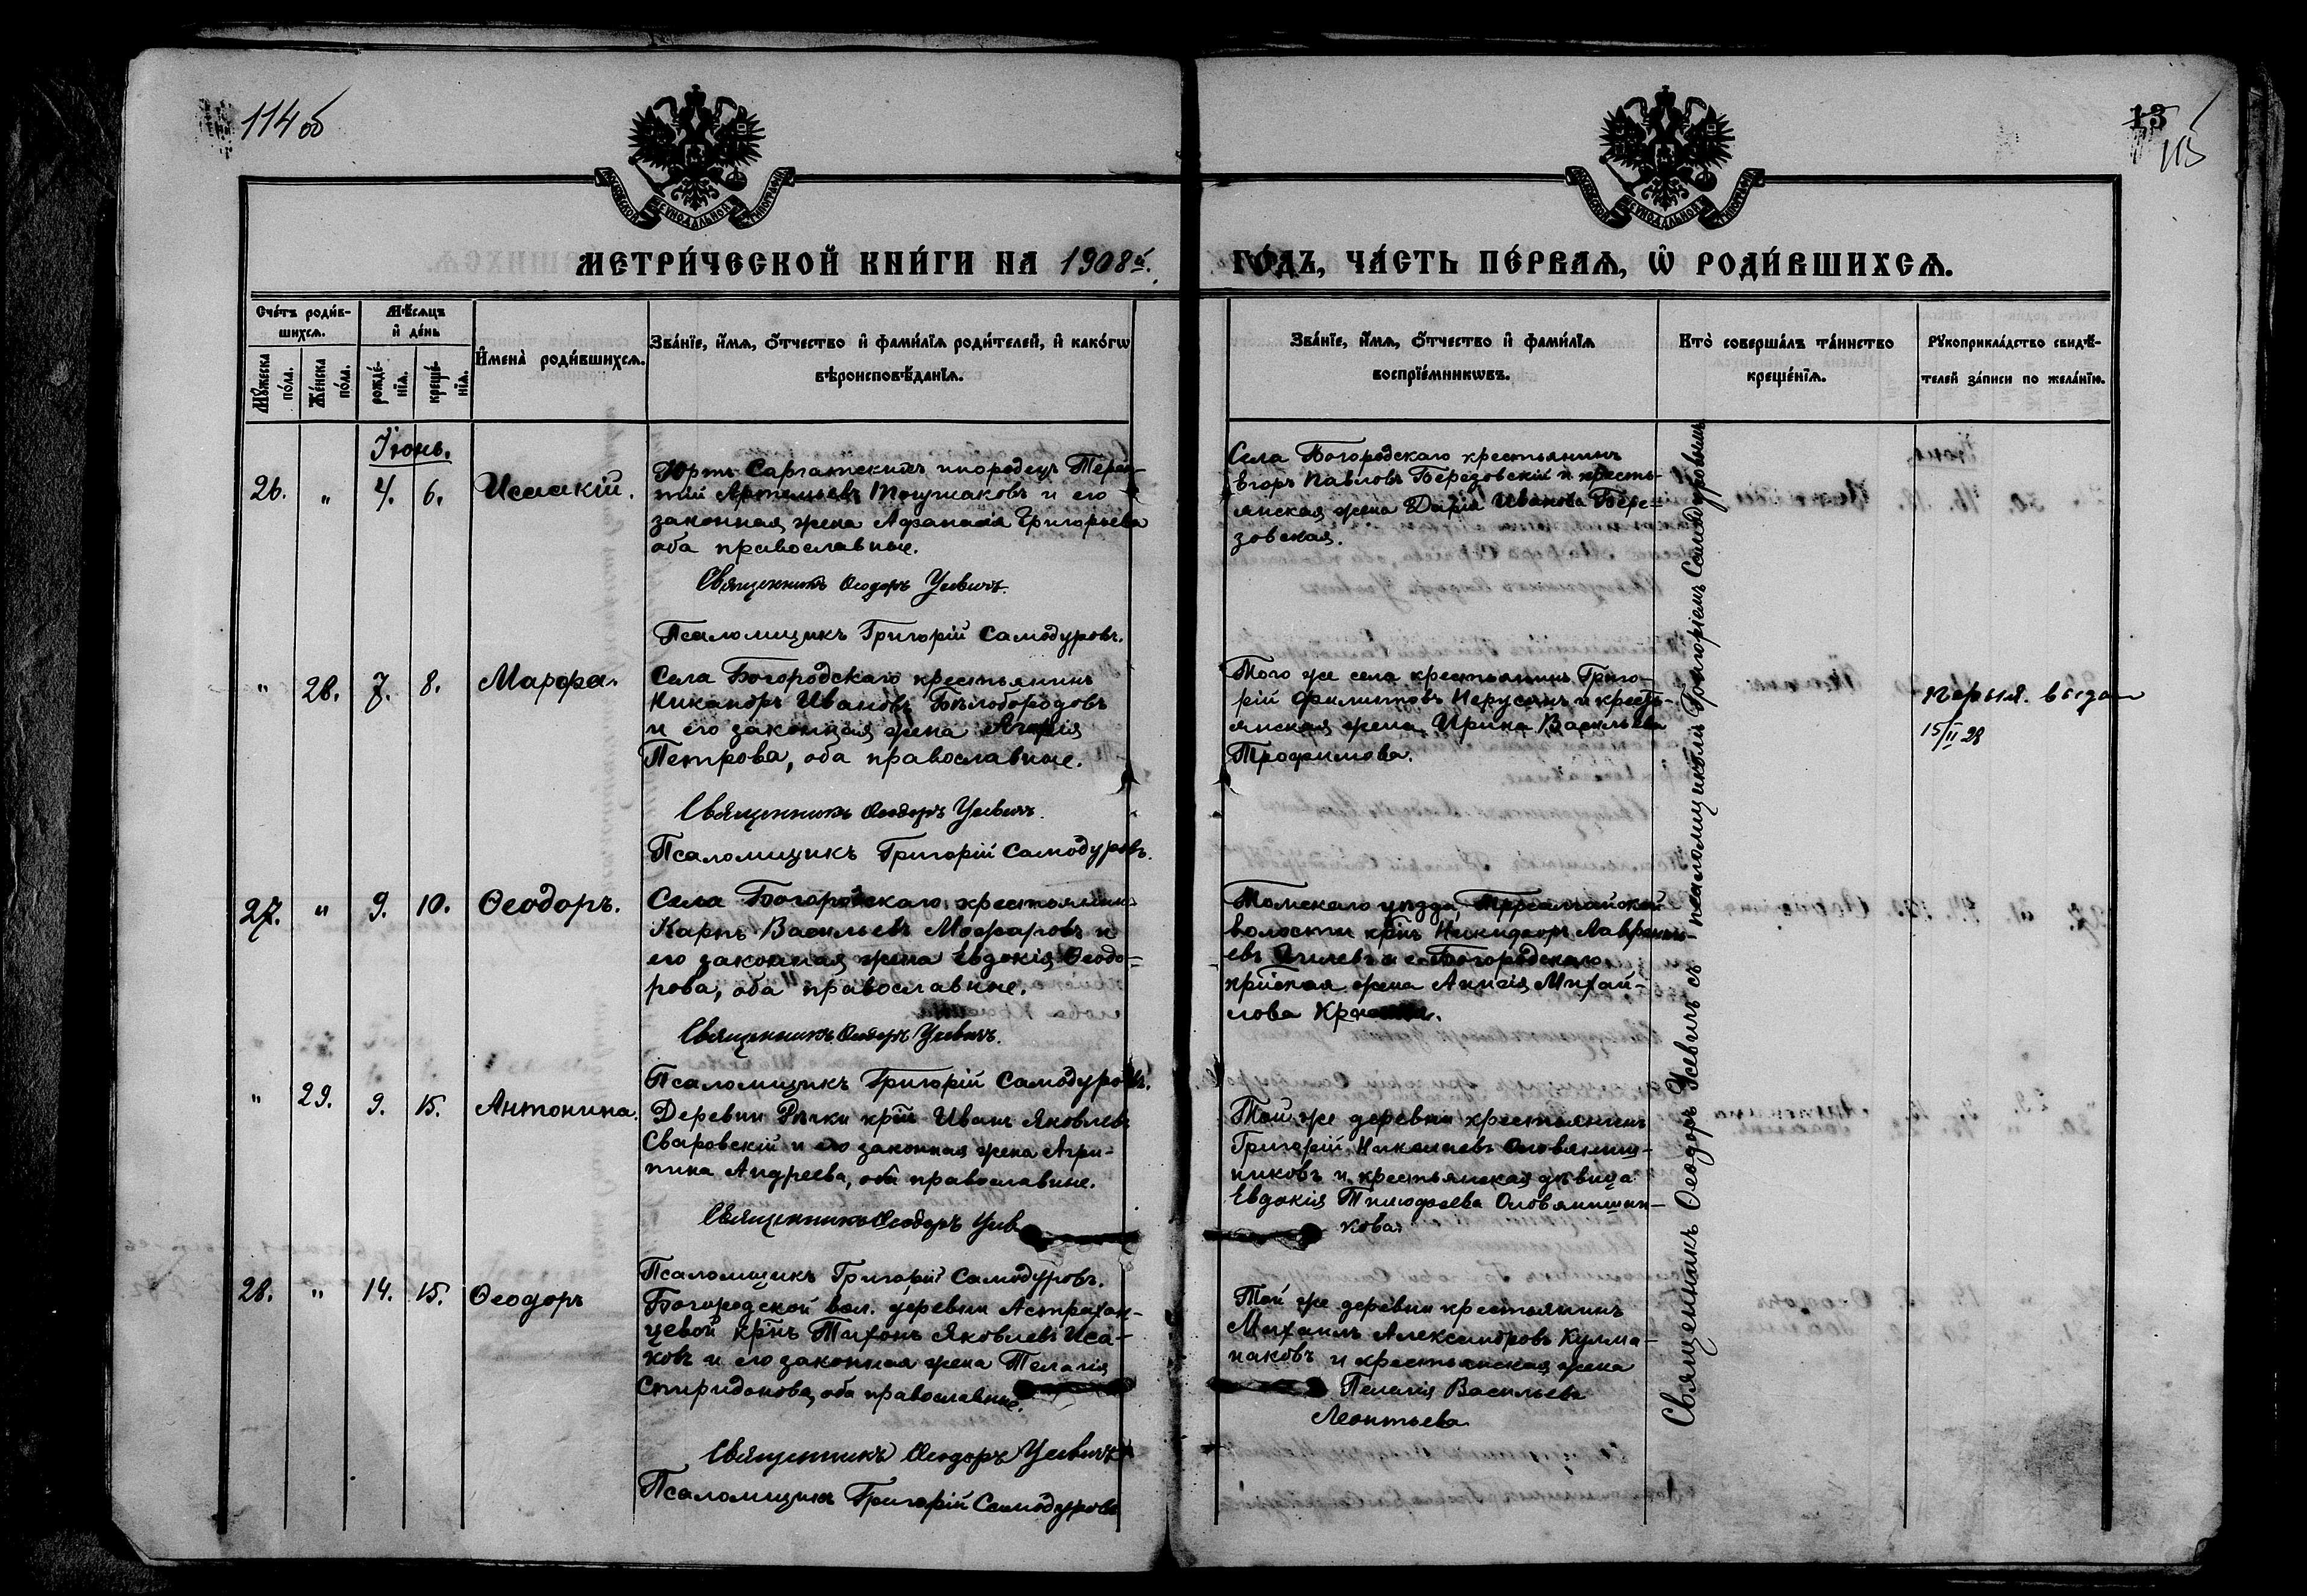 114 об
13
115
МОСКОВСКОЙ СѴНОДАЛЬНОЙ ТИПОГРАФІИ
МОСКОВСКОЙ СѴНОДАЛЬНОЙ ТИПОГРАФІИ
МЕТРИ́ЧЕСКОЙ КНИ́ГИ НА 1908й. ГО́ДЪ, ЧА́СТЬ ПЕ́РВАѦ, Ѡ҆ РОДИ́ВШИХСѦ.
Сче́тъ роди́в-
шихсѧ.
Мꙋ́жеска по́ла.
Же́нска по́ла.
Мѣ́сѧцъ
и҆ де́нь
рожде́-
нїѧ.
креще́-
нїѧ.
И҆мена̀ роди́вшихсѧ.
Зва́нїе, и҆́мѧ, ѻ҆́тчество и҆ фами́лїѧ роди́телей, и҆ како́гѡ
вѣроисповѣ́данїѧ.
Зва́нїе, и҆́мѧ, ѻ҆́тчество и҆ фами́лїѧ
воспрїе́мникѡвъ.
Кто̀ соверша́лъ та́инство
креще́нїѧ.
Рꙋкоприкла́дство свидѣ́-
телей за́писи по жела́нїю.
Іюнь.
26. " 4. 6. Исаакій.
Юртъ Саргатскихъ инородецъ Терен-
тій Артемьевъ Тоушаковъ и его
законная жена Афанасія Григорьева
оба православные.
Священникъ Ѳеодоръ Усевичъ.
Псаломщикъ Григорій Самодуровъ.
Села Богородскаго крестьянинъ
Егоръ Павловъ Березовскій и кресть-
янская жена Дарія Иванова Бере=
зовская.
" 28. 7. 8. Марѳа.
Села Богородскаго крестьянинъ
Никаноръ Ивановъ Бѣлобородовъ
и его законная жена
Петрова, оба православные.
Священникъ Ѳеодоръ Усевичъ.
Псаломщикъ Григорій Самодуровъ.
Того же села крестьянинъ Григо-
рій Филиповъ и кресть-
янская жена Ирина Васильева
Трофимова.
выдан
15/II 28
27. " 9. 10. Ѳеодоръ.
Села Богородскаго крестьянинъ
Карпъ Васильевъ Мосфаровъ и
его законная жена Евдокія Ѳеодо=
рова, оба православные.
Священникъ Ѳеодоръ Усевичъ.
Псаломщикъ Григорій Самодуровъ.
Томскаго уѣзда,
волости крнъ Никифоръ Лаврентъ-
евъ и с. Богородскаго
крнская жена Анисія Михай-
лова
" 29. 9. 15. Антонина.
Деревни крнъ Иванъ Яковлевъ
Сваровскій и его законная жена Агри-
пина Андреева, оба православные.
Священникъ Ѳеодоръ Усев
Псаломщикъ Григорій Самодуровъ.
Той же деревни крестьянинъ
Григорій Николаевъ Оловяниш-
никовъ и крестьянская дѣвица
Евдокія Тимофеева Оловянишни-
кова
28. " 14. 15. Ѳеодоръ
Богородской вол. деревни Астрахан-
цевой крнъ Тихонъ Яковлевъ Иса-
ковъ и его законная жена Пелагія
Спиридонова, оба православные.
Священникъ Ѳеодоръ Усевичъ
Псаломщикъ Григорій Самодуровъ
Той же деревни крестьянинъ
Михаилъ Александровъ Кулма-
наковъ и крестьянская жена
Пелагія Васильева
Леонтьева
Священникъ Ѳеодоръ Усевичъ съ псаломщикомъ Григоріемъ Самодуровымъ